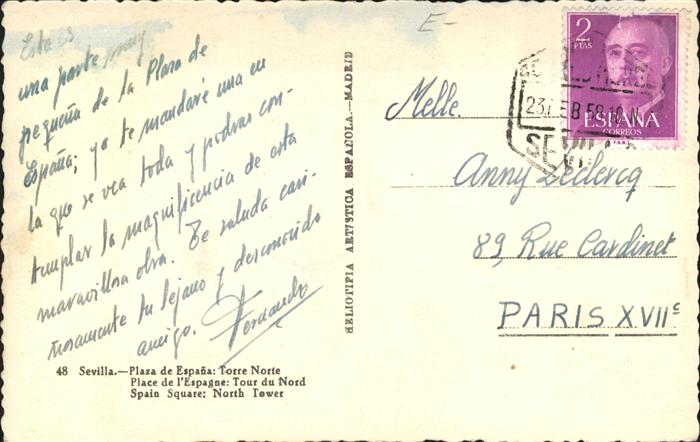 Esta es
una parte muy
pequeña de la Plaza de
España; ya te mandaré una en
la que se vea toda y podras con-
templar la magnificencia de esta
maravillosa obra. Te saluda cari-
ñosamente tu lejano y desconocido
amigo. Fernando
48 Sevilla.—Plaza de España: Torre Norte
Place de l'Espagne: Tour du Nord
Spain Square: North Tower
HELIOTIPIA ARTISTICA ESPAÑOLA.—MADRID
E-
2
PTAS
ESPAÑA
CORREOS
SEVILLA
Melle.
Anny Leclercq
89, Rue Cardinet
PARIS XVIIe